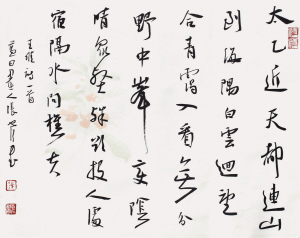 太乙近天都連山
到海隅白雲迴望
合青靄入看無分
野中峯變陰
晴眾壑殊欲投人處
宿隔水問樵夫
王維詩一首